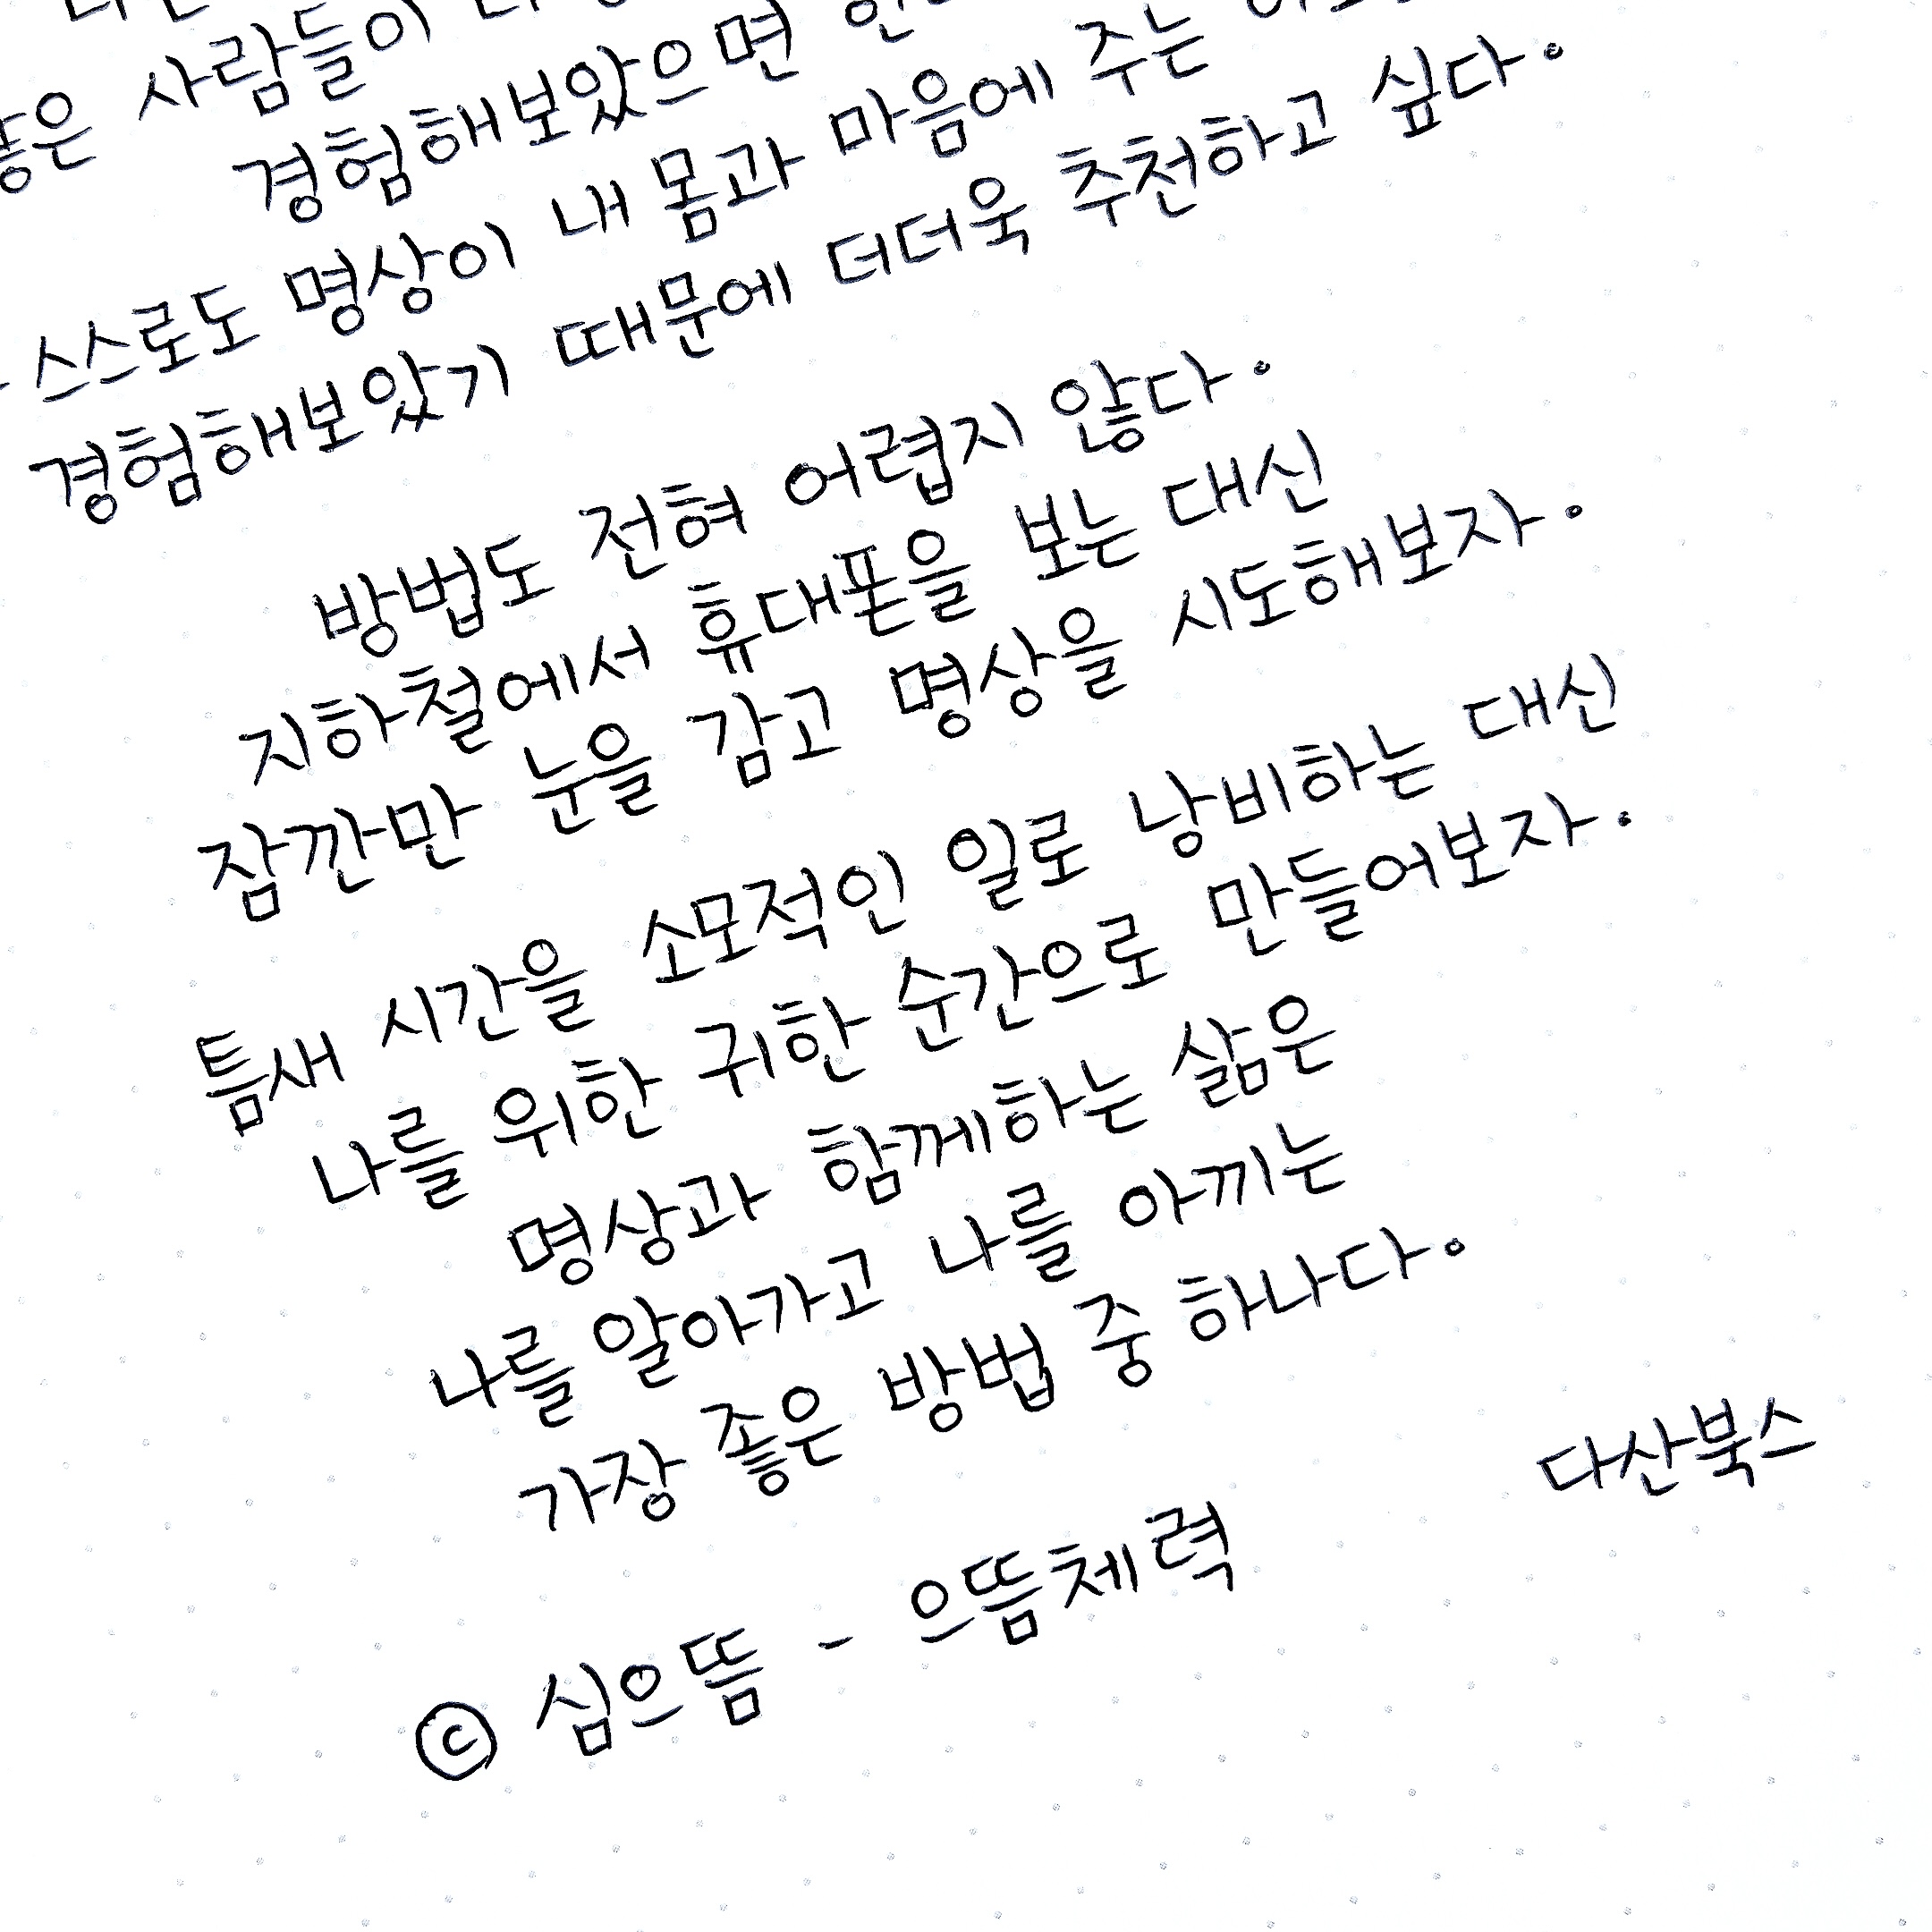 사람들이
경험해보았으면
스스로도 명상이 내 몸과 마음에 주는
경험해보았기 때문에 더더욱 추천하고 싶다.
방법도 전혀 어렵지 않다.
지하철에서 휴대폰을 보는 대신
잠깐만 눈을 감고 명상을 시도해보자.
틈새 시간을 소모적인 일로 낭비하는 대신
나를 위한 귀한 순간으로 만들어보자.
명상과 함께하는 삶은
나를 알아가고 나를 아끼는
가장 좋은 방법 중 하나다.
다산북스
© 심으뜸 - 으뜸체력